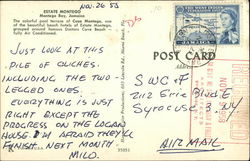 NOV. 26 53
ESTATE MONTEGO
Montego Bay, Jamaica
The colorful pool terrace of Casa Montego, one
of the beautiful beach hotels of Estate Montego,
grouped around famous Doctors Cave Beach.
Fully Air Conditioned.
JUST LOOK AT THIS
PILE OF CLICHES.
INCLUDING THE TWO
LEGGED ONES.
EVERYTHING IS JUST
RIGHT EXCEPT THE
PROGRESS ON THE LOGAN
HOUSE. I'M AFRAID THEY'LL
FINISH NEXT MONTH
MILO.
35951
THE WEST INDIES
JAMAICA
POST CARD
SWC & F
2112 Erie Blvd E
Syracuse 3 NY
AIR MAIL